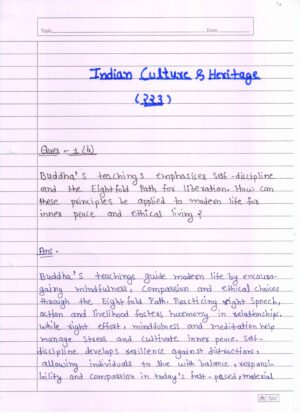 Topic
Date
Indian Culture & Heritage
(223)
Ques - 1 (b)
Buddha's teachings emphasises self-discipline
and the Eightfold Path for liberation. How can
these principles be applied to modern life for
inner peace and ethical living?
Ans.
Buddha's teachings guide modern life by encoura-
ging mindfulness, compassion and ethical choices
through the Eightfold Path. Practicing right Speech,
action and livelihood fosters harmony in relationships,
while right effort, mindfulness and meditation help
manage stress and cultivate inner peace. Self-
discipline develops resilience against distractions,
allowing individuals to live with balance, responsi-
bility and compassion in today's fast-paced, material